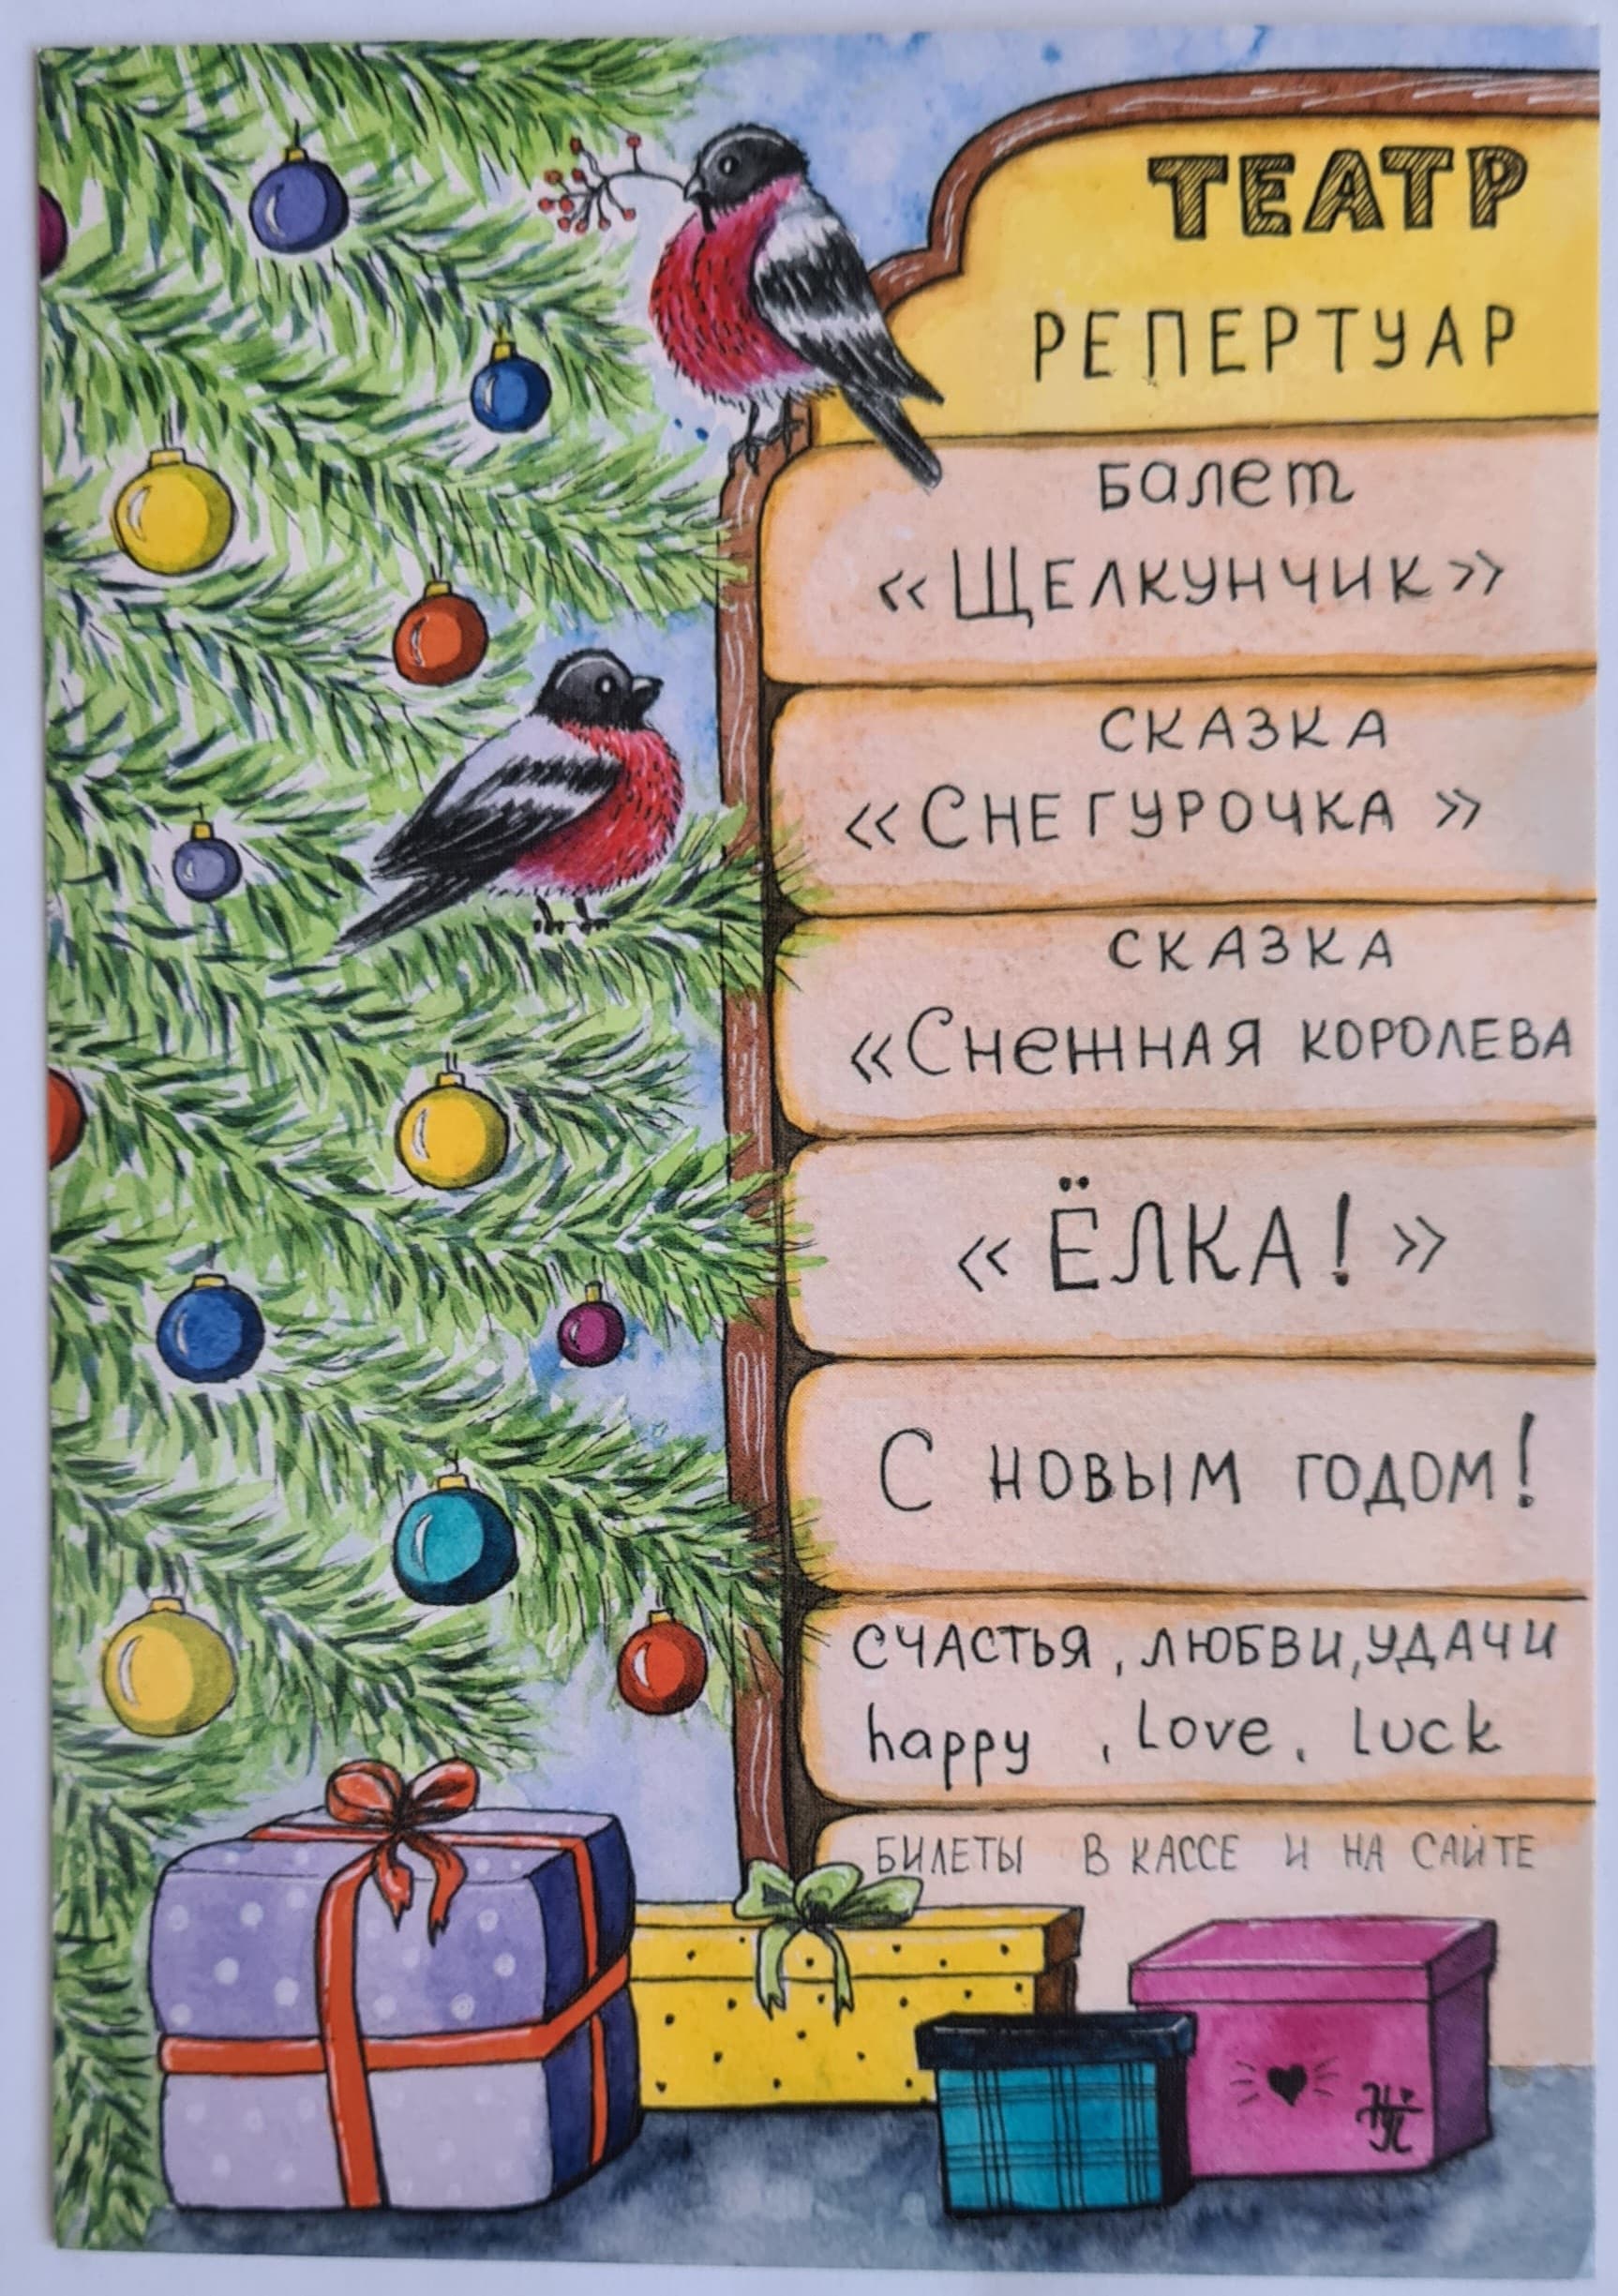 ТЕАТР
РЕПЕРТУАР
балет
«ЩЕЛКУНЧИК»
СКАЗКА
«СНЕГУРОЧКА»
СКАЗКА
«Снежная КОРОЛЕВА
«ЁЛКА!»
С НОВЫМ ГОДОМ!
СЧАСТЬЯ, ЛЮБВИ, УДАЧИ
happy , Love, luck
БИЛЕТЫ В КАССЕ И НА САЙТЕ